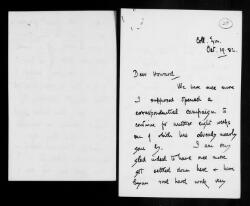 Coll. Exon.
Oct. 19. 82.
Dear Howard,
We have once more
I supposed opened a
correspondential campaign to
continue for another eight weeks
one of which has already nearly
gone by. I am very
glad indeed to have once more
got settled down here & have
begun real hard work. My